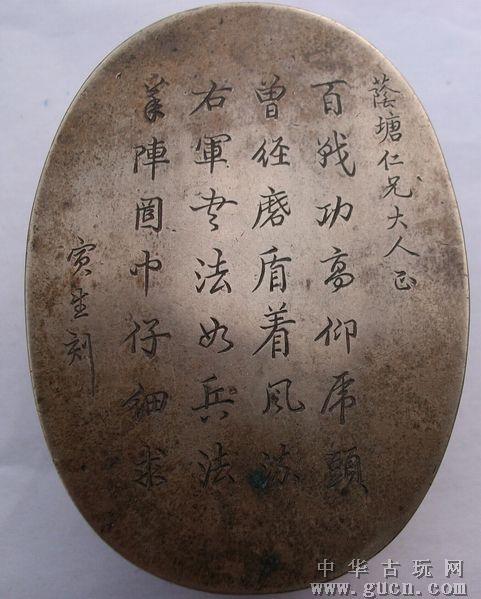 蔭塘仁兄大人正
百战功高仰虎頭
曾经磨盾着風流
右軍书法如兵法
筆陣图中仔細求
寅生刻
中华古玩网
www.gucn.com